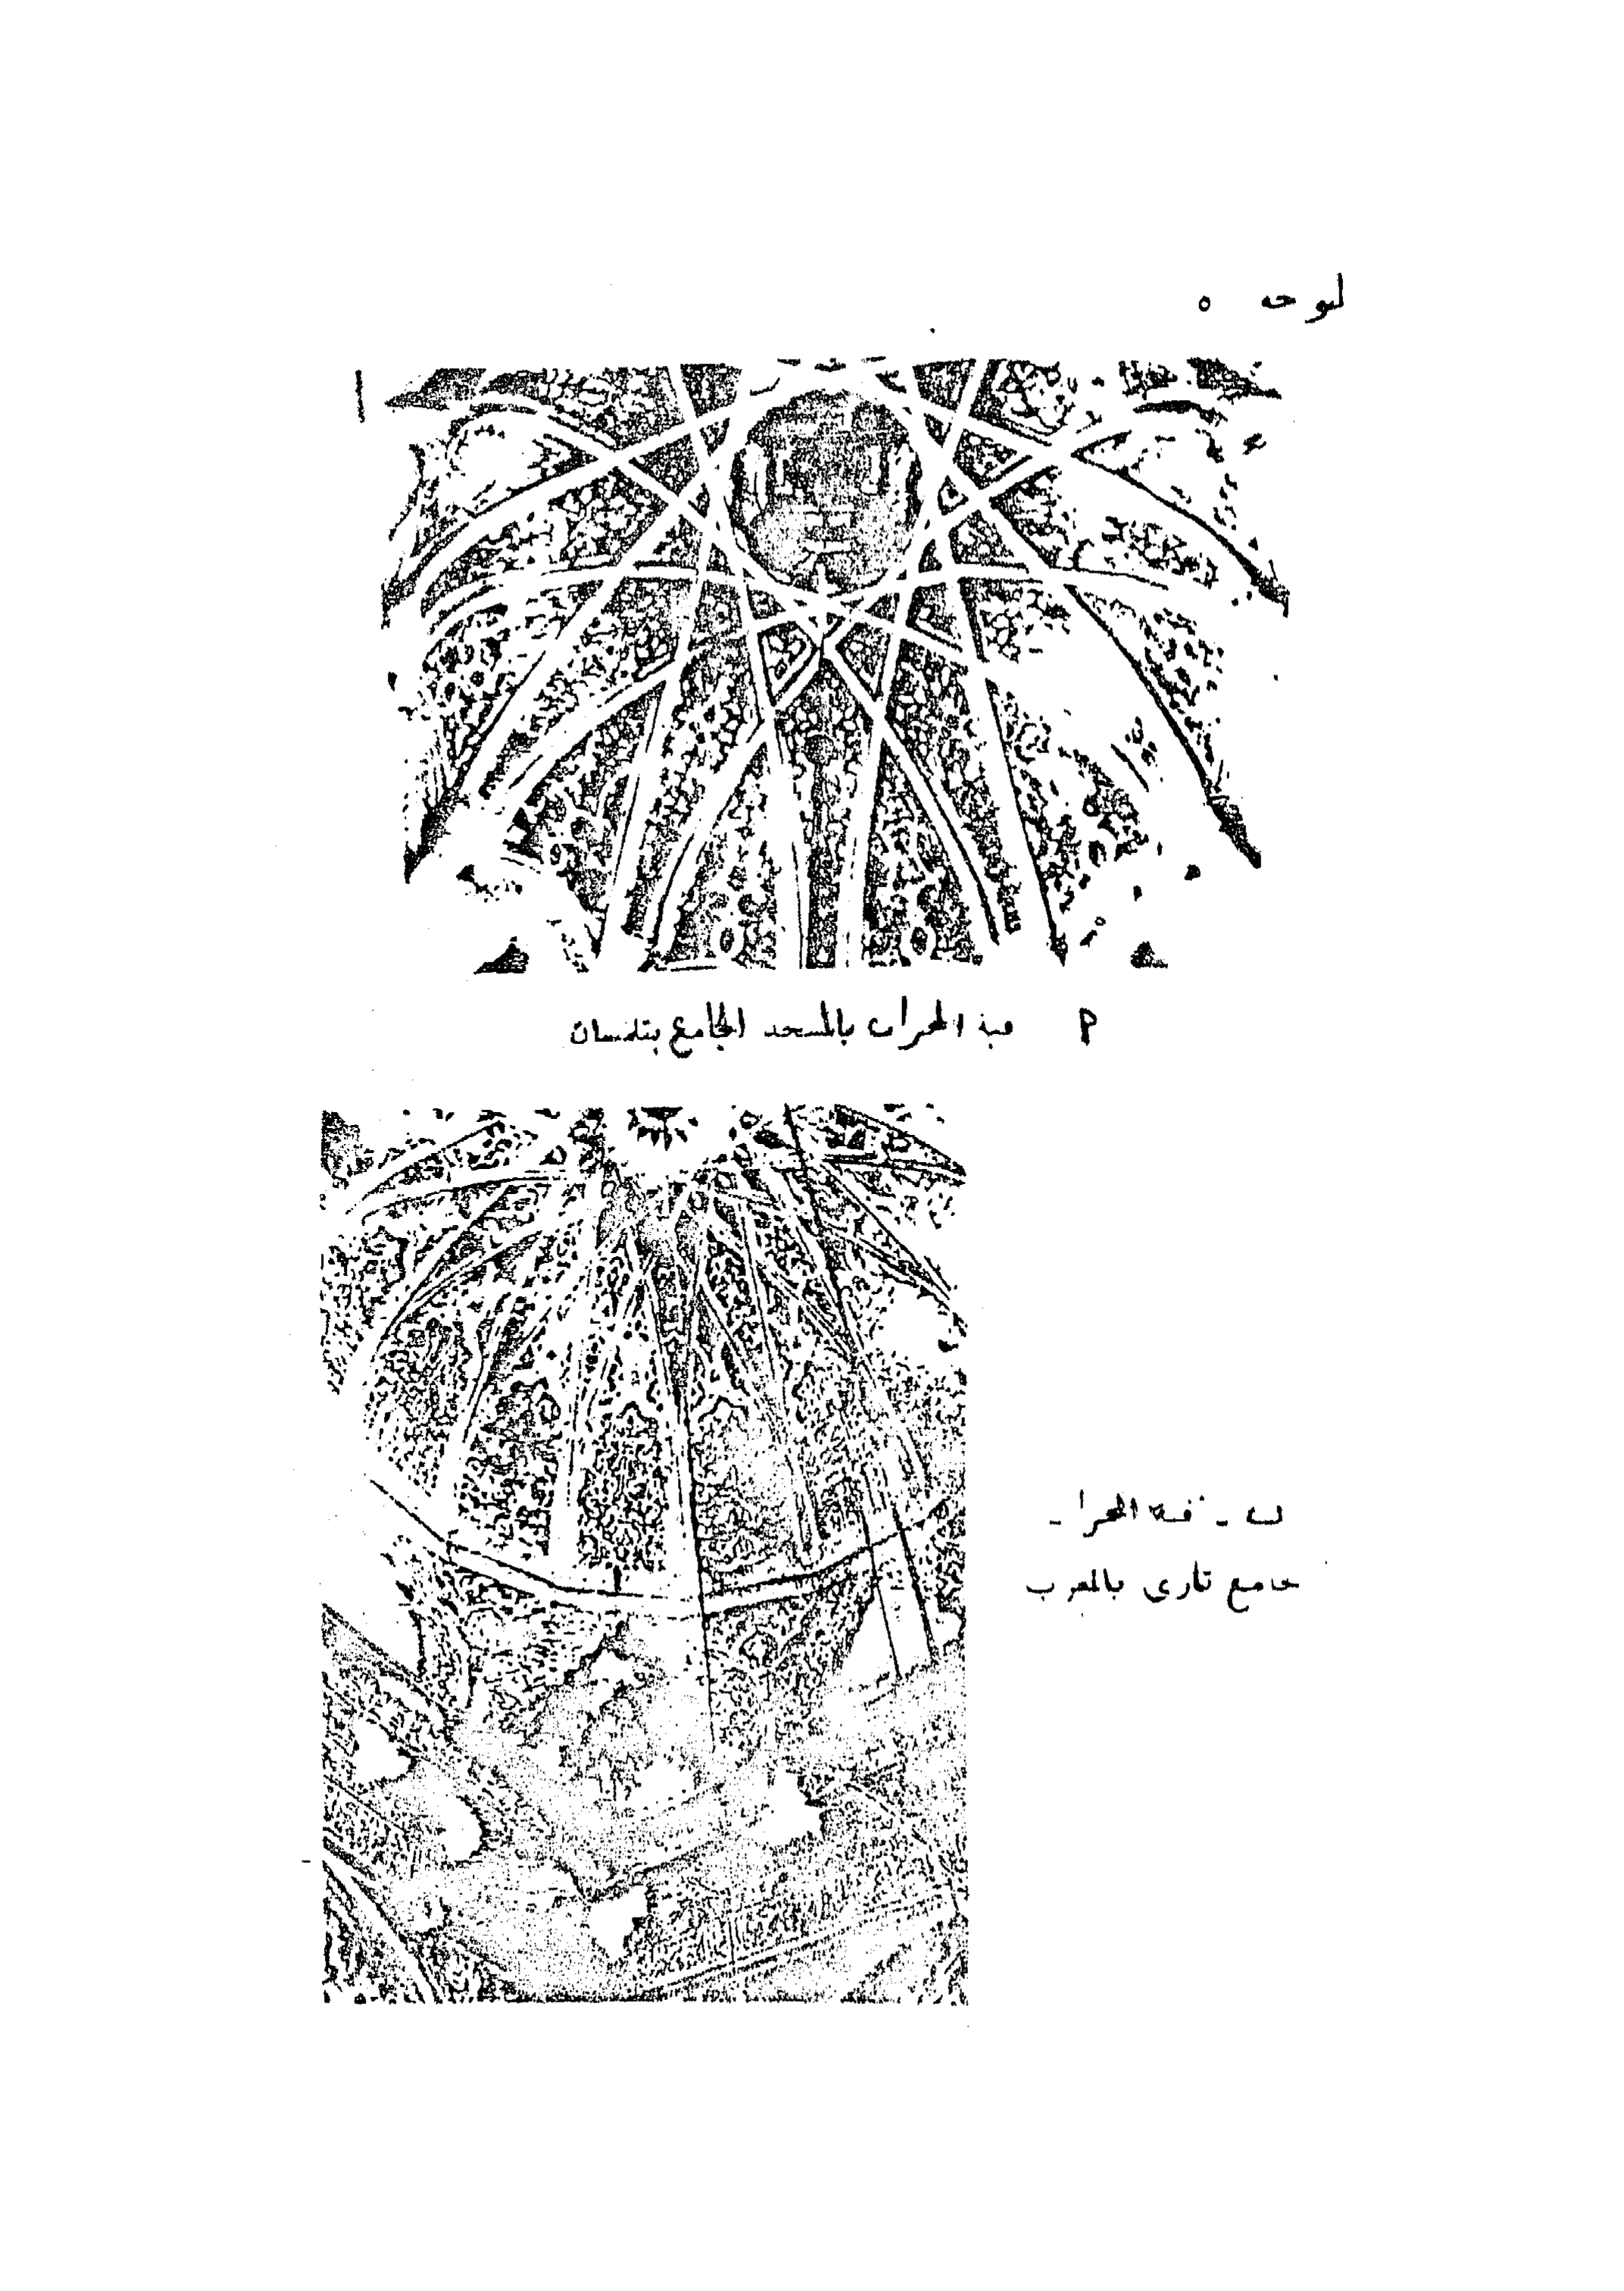 لوحه ٥
أ قبة المحراب بالمسجد الجامع بتلمسان
ب - قبة المحراب -
جامع تازى بالمغرب